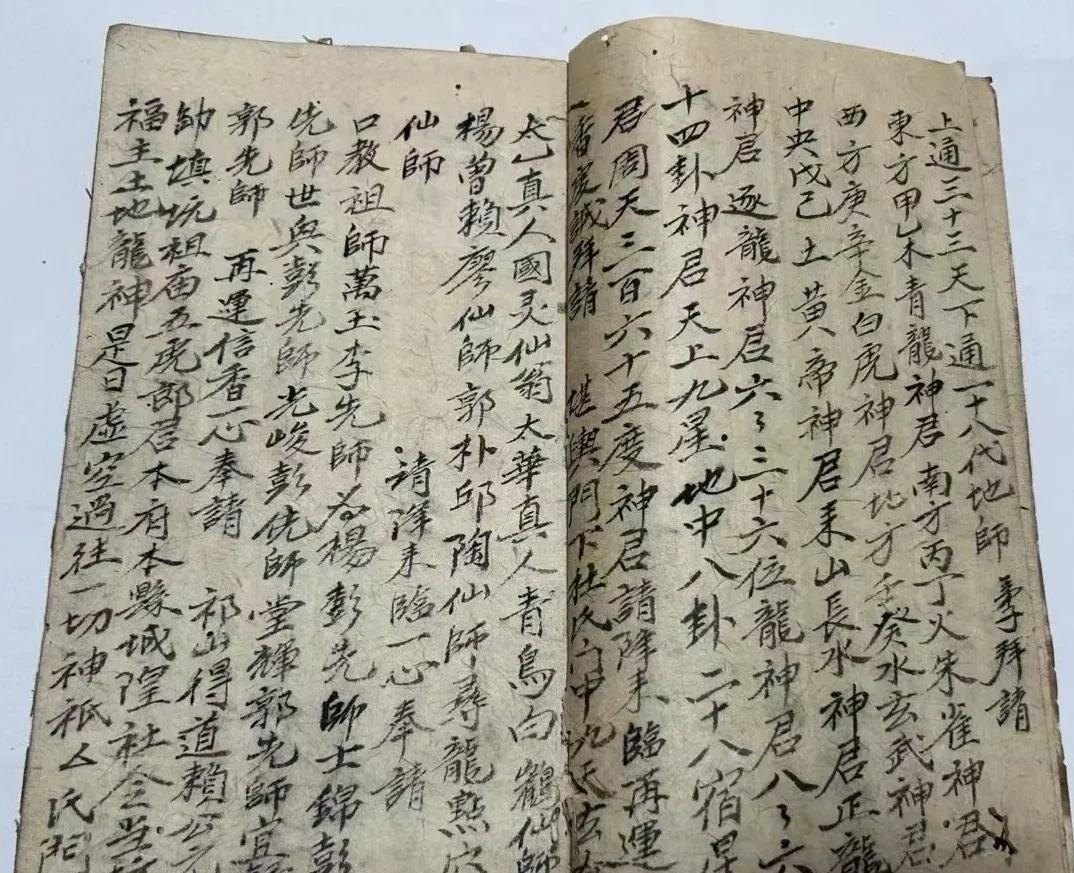 上通三十三天下通一十八代地師 奉拜請
東方甲乙木青龍神君 南方丙丁火朱雀神君
西方庚辛金白虎神君北方壬癸水玄武神君
中央戊己土黃帝神君来山長水神君正龍
神君逐龍神君六々三十六位龍神君八々六
十四卦神君天上九星地中八卦二十八宿星
君周天三百六十五度神君請降来臨再運
一香虔誠拜請 堪輿門下杜氏宅中九天玄女
太乙真人國灵仙翁太華真人青鳥白鶴仙師
楊曾賴廖仙師郭朴邱陶仙師尋龍點穴
仙師 請降来臨一心奉請
口教祖師萬玉李先師 楊彭先師士錦彭
先師世與彭先師光峻彭先師堂輝郭先師宜
郭先師 再運信香一心奉請 祁山得道賴公元
填坑祖庙五虎郎君本府本縣城隍社令当
福主土地龍神是日虛空過往一切神祇厶氏門